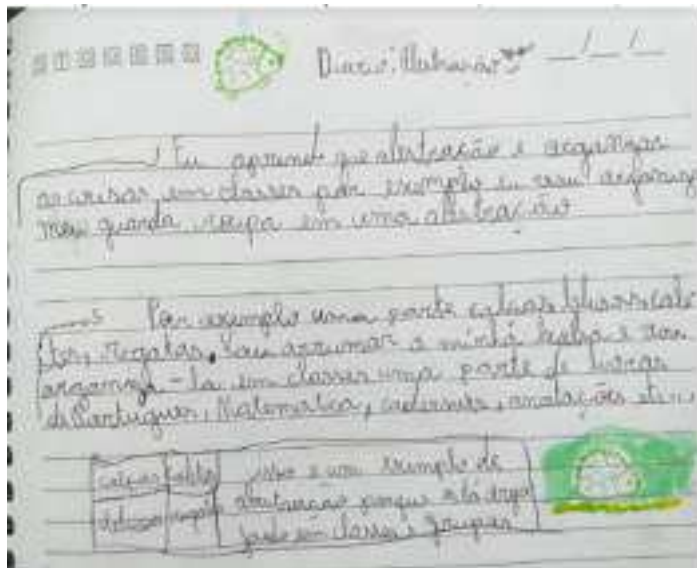 Diario: Abstração
__/__/__
Eu aprendi que abstração é organizar
as coisas em classes por exemplo eu vou organizar
meu guarda roupa em uma abstração
Por exemplo uma parte calças, blusas,
regatas. Vou arrumar a minha bolsa e vou
organiza-la em classes uma parte de livros
de Portugues, Matematica, cadernos, anotações etc
calças
blusas
isso e um exemplo de
abstração porque
em classes e grupos